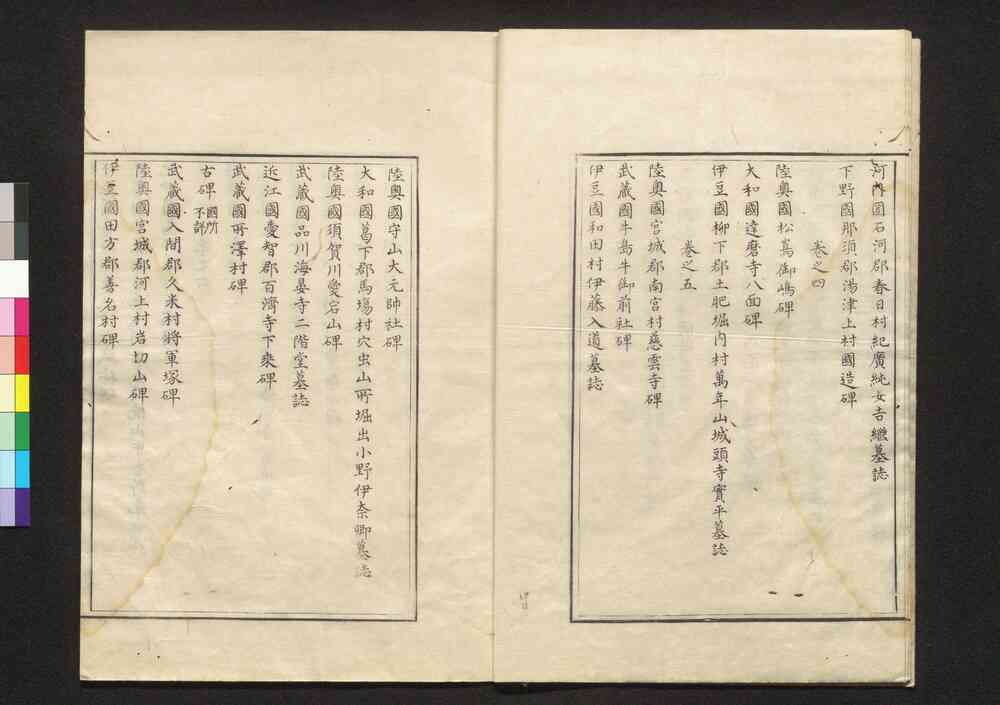 河内國石河郡春日村紀廣純女吉繼墓誌
下野國那須郡湯津上村國造碑
巻之四
陸奥國松嶌御嶋碑
大和國達磨寺八面碑
伊豆國柳下郡土肥堀内村萬年山城頭寺實平墓誌
巻之五
陸奥國宮城郡南宮村慈雲寺碑
武蔵國牛島牛御前社碑
伊豆國和田村伊藤入道墓誌
陸奥國守山大元帥社碑
大和國葛下郡馬塲村穴虫山所堀出小野伊奈卿墓誌
陸奥國須賀川愛宕山碑
武蔵國品川海晏寺二階堂墓誌
近江國愛智郡百濟寺下乗碑
武蔵國所澤村碑
古碑 國所不詳
武蔵國入間郡久米村將軍塚碑
陸奥國宮城郡河上村岩切山碑
伊豆國田方郡善名村碑